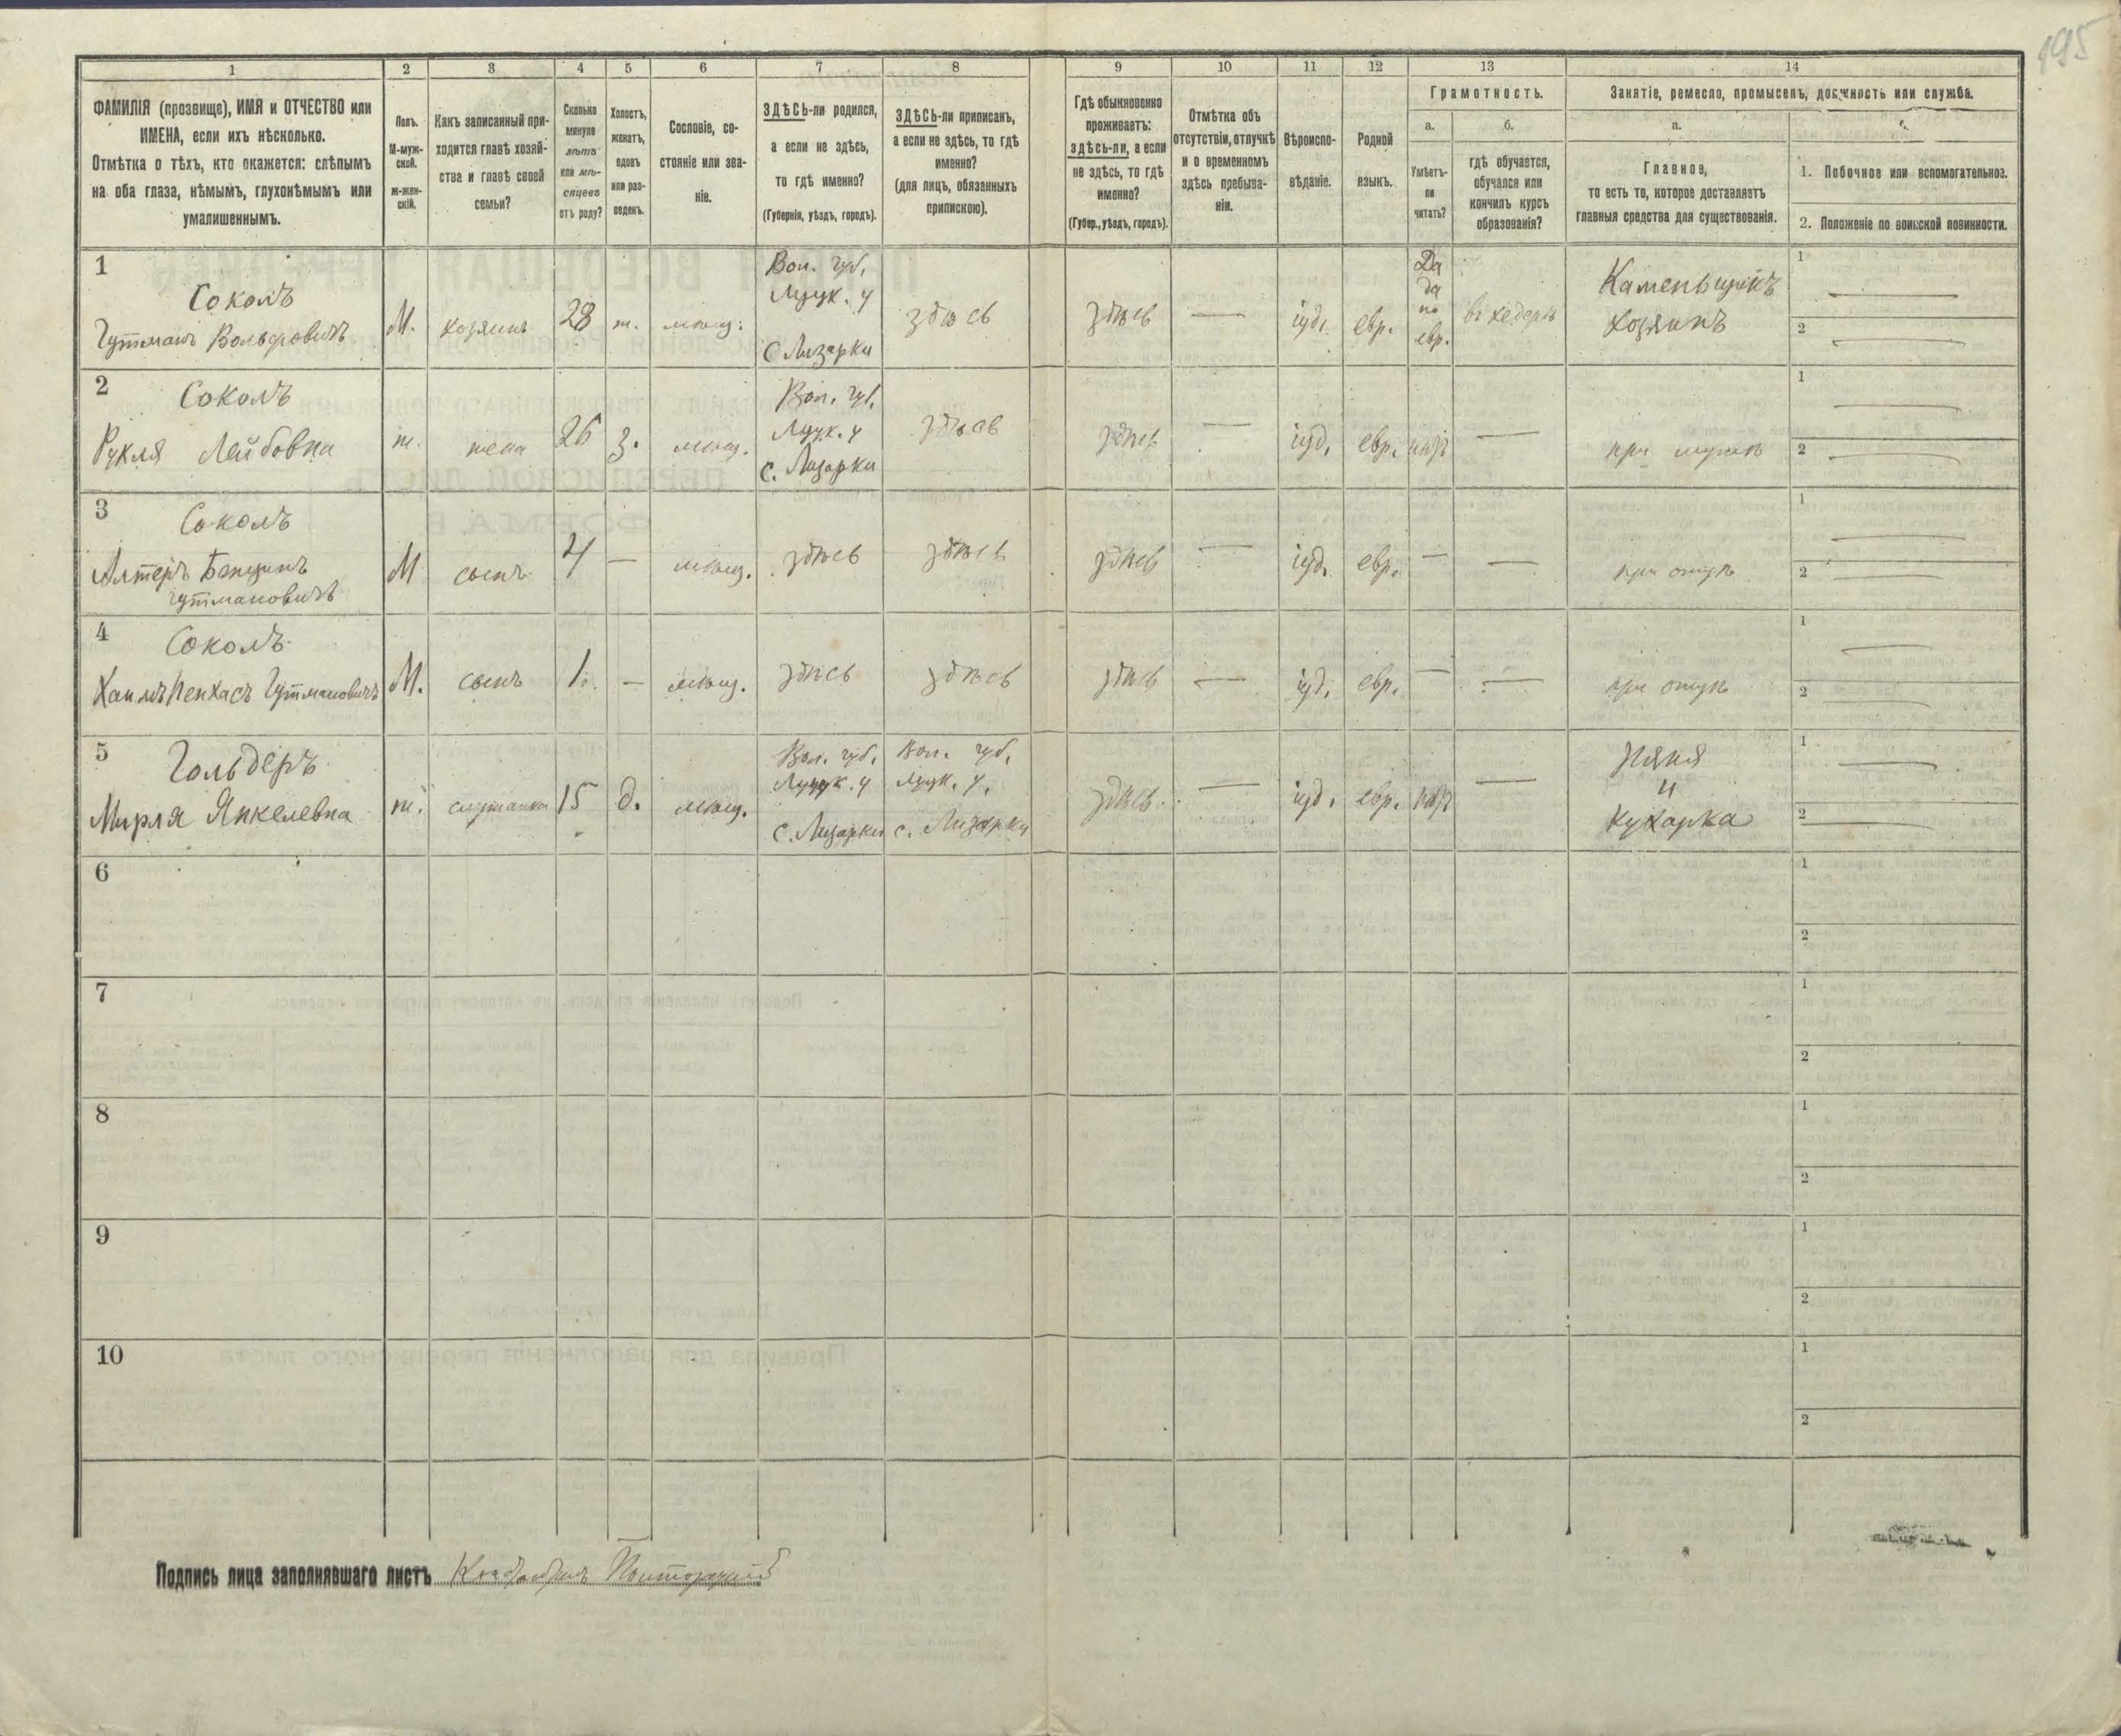 195
1 2 3 4 5 6 7 8 9 10 11 12 13 14
ФАМИЛІЯ (прозвище), ИМЯ и ОТЧЕСТВО или
ИМЕНА, если ихъ нѣсколько.
Отмѣтка о тѣхъ, кто окажется: слѣпымъ
на оба глаза, нѣмымъ, глухонѣмымъ или
умалишеннымъ.
Полъ.
М-муж-
ской.
ж-жен-
скій.
Какъ записанный при-
ходится главѣ хозяй-
ства и главѣ своей
семьи?
Сколько
минуло
лѣтъ
или мѣ-
сяцевъ
отъ роду?
Холостъ,
женатъ,
вдовъ
или раз-
веденъ.
Сословіе, со-
стояніе или зва-
ніе.
ЗДѢСЬ-ли родился,
а если не здѣсь,
то гдѣ именно?
(Губернія, уѣздъ, городъ).
ЗДѢСЬ-ли приписанъ,
а если не здѣсь, то гдѣ
именно?
(для лицъ, обязанныхъ
припискою).
Гдѣ обыкновенно
проживаетъ:
здѣсь-ли, а если
не здѣсь, то гдѣ
именно?
(Губер., уѣздъ, городъ).
Отмѣтка объ
отсутствіи, отлучкѣ
и о временномъ
здѣсь пребыва-
ніи.
Вѣроиспо-
вѣданіе.
Родной
языкъ.
Грамотность.
а.
Умѣетъ-
ли
читать?
б.
гдѣ обучается,
обучался или
кончилъ курсъ
образованія?
Занятіе, ремесло, промыселъ, должность или служба.
а.
Главное,
то есть то, которое доставляетъ
главныя средства для существованія.
1. Побочное или вспомогательное.
2. Положеніе по воинской повинности.
1
Соколъ
Гутманъ Вольфовичъ
М.
хозяинъ
28
ж.
мѣщ.
Вол. губ.
Луцк. у
С Лизарки
здѣсь
здѣсь
—
іуд.
евр.
Да
да
по
евр.
въ хедерѣ
Каменьщикъ
хозяинъ
1 —
2 —
2
Соколъ
Рухля Лейбовна
ж.
жена
26
з.
мѣщ.
Вол. губ.
Луцк. у
с. Лизарки
здѣсь
здѣсь
—
іуд.
евр.
нѣт
—
при мужѣ
1 —
2 —
3
Соколъ
Алтеръ Бенціинъ
Гутмановичъ
М
сынъ
4
—
мѣщ.
здѣсь
здѣсь
здѣсь
—
іуд.
евр.
—
—
при отцѣ
1 —
2 —
4
Соколъ
Хаимъ Пенхасъ Гутмановичъ
М.
сынъ
1.
—
мѣщ.
здѣсь
здѣсь
здѣсь
—
іуд.
евр.
—
—
при отцѣ
1 —
2 —
5
Гольдеръ
Мирля Янкелевна
ж.
служанка
15
д.
мѣщ.
Вол. губ.
Луцк. у
с. Лизарки
Вол. губ.
Луцк. у.
с. Лизарки
здѣсь.
—
іуд.
евр.
нѣт
—
Няня
и
Кухарка
1 —
2 —
6
1
2
7
1
2
8
1
2
9
1
2
10
1
2
Подпись лица заполнявшаго листъ